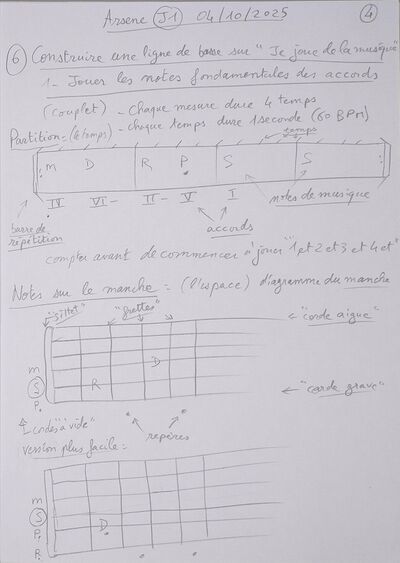 Arsene J1 04/10/2025 4
6 Construire une ligne de basse sur "Je joue de la musique"
1 - Jouer les notes fondamentales des accords
(couplet) - Chaque mesure dure 4 temps
Partition = (le temps) - chaque temps dure 1 seconde (60 BPM)
temps
m D R P S S
IV VI- II- V I
notes de musique
barre de répétition
accords
compter avant de commencer à jouer "1 et 2 et 3 et 4 et"
Notes sur le manche = (l'espace) diagramme du manche
"sillet" "frettes" "corde aigue"
D
m
S R
P
"corde grave"
"cordes à vide" repères
version plus facile =
m
S
P D
R